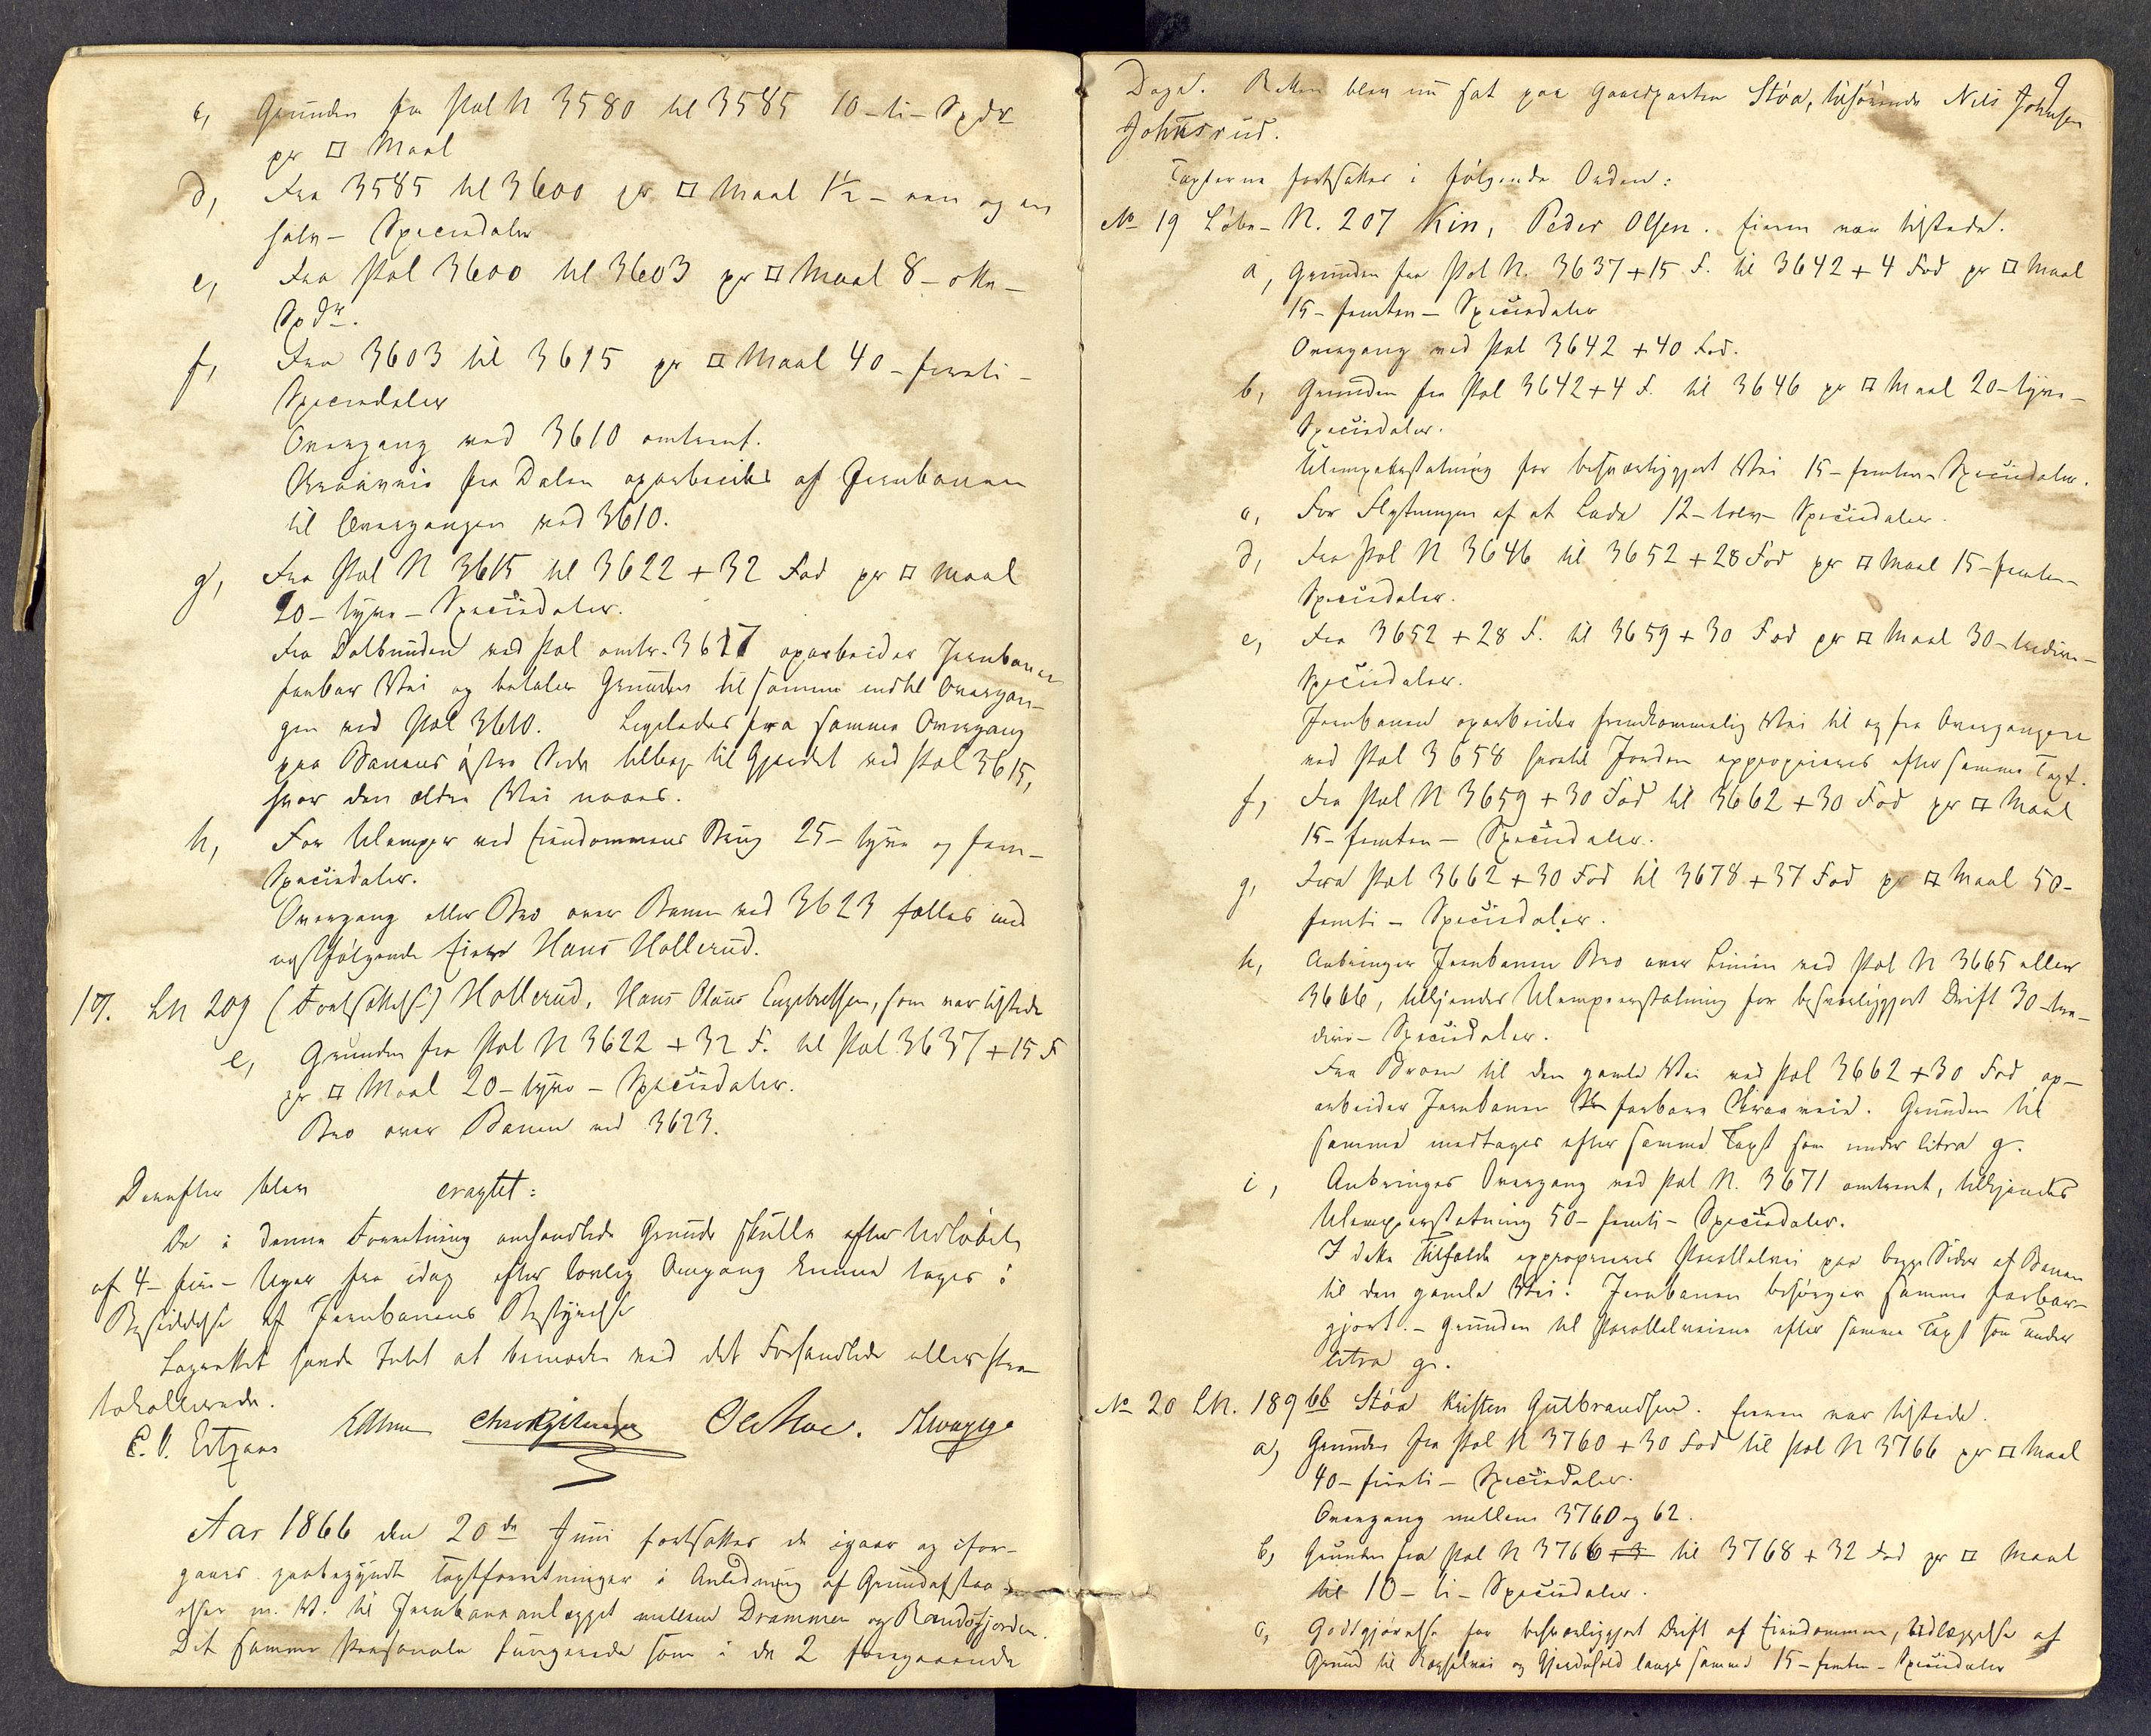 c, Grunden fra Pæl N 3580 til 3585 10 – ti – Spdr
pr □ Maal
d, Fra 3585 til 3600 pr □ Maal 1½ – een og en
halv – Speciedaler
e, Fra Pæl 3600 til 3603 pr □ Maal 8 – otte –
Spdr.
f, Fra 3603 til 3615 pr □ Maal 40 – firreti –
Speciedaler
Overgang ved 3610 omtrent.
fra Dalen oparbeides af Jernbanen
til Overgangen ved 3610.
g, Fra Pæl N 3615 til 3622 + 32 Fod pr □ Maal
20 – tyve – Speciedaler.
Fra Dalbunden ved Pæl omtr. 3617 oparbeider Jernbanen
farbar Vei og betaler Grunden til samme indtil Overgan-
gen ved Pæl 3610. Ligeledes fra samme Overgang
paa Banens østre Side tilbage til Gjerdet ved Pæl 3615,
hvor den ældre Vei naaes.
h, For Ulemper ved Eiendommens Brug 25 – tyve og fem –
Speciedaler.
Overgang eller Bro over Banen ved 3623 fælles med
næstfølgende Eier Hans Hollerud.
17. LN 209 (Fortsættelse) Hollerud, Hans Olaus Engebretsen, som var tilstede
e, Grunden fra Pæl N 3622 + 32 F. til Pæl 3637 + 15 F
pr □ Maal 20 – tyve – Speciedaler.
Bro over Banen ved 3623.
Derefter blev eragtet:
De i denne Forretning omhandlede Grunde skulle efter Udløbet
af 4 – fire – Uger fra idag efter lovlig Omgang kunne tages i
Besiddelse af Jernbanens Bestyrelse
Lagrettet havde Intet at bemærke ved det Forhandlede eller Pro-
tokollerede.
Aar 1866 den 20de Juni fortsattes de igaar og ifor-
gaars paabegyndte Taxtforretninger i Anledning af Grundafstaa-
elser m. V. til Jernbaneanlægget mellem Drammen og Randsfjorden.
Det samme Personale fungerede som i de 2 foregaaende
9
Dage. Retten blev nu sat paa Gaardparten Støa, tilhørende Nils Johnsen
Johnsrud.
Taxterne fortsattes i følgende Orden:
No 19 Løbe-N. 207 Kin, Peder Olsen. Eieren var tilstede.
a, Grunden fra Pæl N. 3637 + 15 F. til 3642 + 4 Fod pr □ Maal
15 – femten – Speciedaler
Overgang ved Pæl 3642 + 40 Fod.
b, Grunden fra Pæl 3642 + 4 F. til 3646 pr □ Maal 20 – tyve –
Speciedaler.
Ulempeerstatning for besværliggjort Vei 15 – femten – Speciedaler.
c, For Flytningen af et Lade 12 – tolv – Speciedaler.
d, Fra Pæl N 3646 til 3652 + 28 Fod pr □ Maal 15 – femten –
Speciedaler.
e, Fra 3652 + 28 F. til 3659 + 30 Fod pr □ Maal 30 – tredive –
Speciedaler.
Jernbanen oparbeider fremkommelig Vei til og fra Overgangen
ved Pæl 3658 hvortil Jorden exproprieres efter samme Taxt.
f, Fra Pæl N 3659 + 30 Fod til 3662 + 30 Fod pr □ Maal
15 – femten – Speciedaler.
g, Fra Pæl 3662 + 30 Fod til 3678 + 37 Fod pr □ Maal 50 –
femti – Speciedaler.
h, Anbringer Jernbanen Bro over Linien ved Pæl N 3665 eller
3666, tilkjendes Ulempeerstatning for besværliggjort Drift 30 – tre-
dive – Speciedaler.
Fra Broen til den gamle Vei ved Pæl 3662 + 30 Fod op-
arbeider Jernbanen farbare. Grunden til
samme medtages efter samme Taxt som under litra g.
i, Anbringes Overgang ved Pæl N. 3671 omtrent, tilkjendes
Ulempeerstatning 50 – femti – Speciedaler.
I dette Tilfælde exproprieres Parallelvei paa begge Sider af Banen
til den gamle Vei. Jernbanen besørger samme farbar-
gjort. – Grunden til Parallelveiene efter samme Taxt som under
litra g.
No 20 LN. 189 bb Støa Kristen Gulbrandsen. Eieren var tilstede.
a, Grunden fra Pæl N 3760 + 30 Fod til Pæl N 3766 pr □ Maal
40 – firreti – Speciedaler.
Overgang mellem 3760 og 62.
b, Grunden fra Pæl N 3766 + 3 til 3768 + 32 Fod pr □ Maal
til 10 – ti – Speciedaler.
c, Godtgjørelse for besværliggjort Drift af Eiendommen, Udlæggelse af
Grund til og Gjerdehold langs samme 15 – femten – Speciedaler